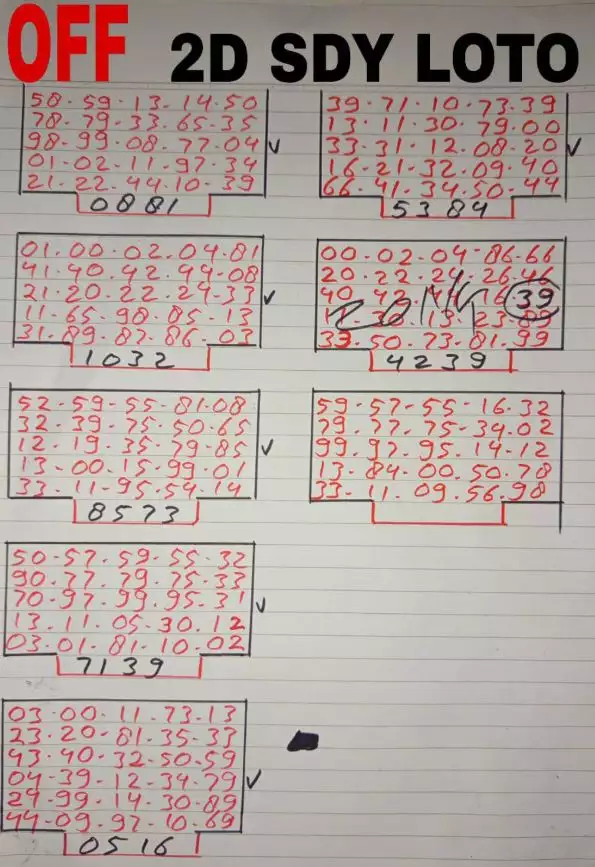 OFF 2D SDY LOTO
58-59-13-14.50
78-79-33.65-35
98-99-08-77-04 ✓
01-02-11-97-34
21-22-44-10-39
0881
01.00.02.04-81
41-40.42.44-08
21-20.22.24-33 ✓
11-65-98.85-13
31.89.87.86-03
1032
52-59-55-81.08
32.39.75.50.65
12-19.35-79-85 ✓
13-00.15.99.01
33.11-95.54.14
8573
50-57.59-55-32
90.77.79.75-33
70-97.99.95.31 ✓
13.11.05.30.12
03.01.81-10-02
7139
03.00.11-73.13
23.20-81.35-33
43-40.32-50-59
04-39-12-34.79 ✓
24-99-14-30-89
44-09.97-10-69
0516
39.71.10.73.39
13.11.30.79.00
33.31.12.08-20 ✓
16-21.32.09.40
66.41.34.50-44
5384
00.02.04-86-66
20.22.24.26.46
40 16 39
30.13.23.89
33.50.73.81.99
4239
59-57-55-16.32
79.77.75-34.02
99.97.95.14-12
13.84.00.50.78
33-11.09.56.98